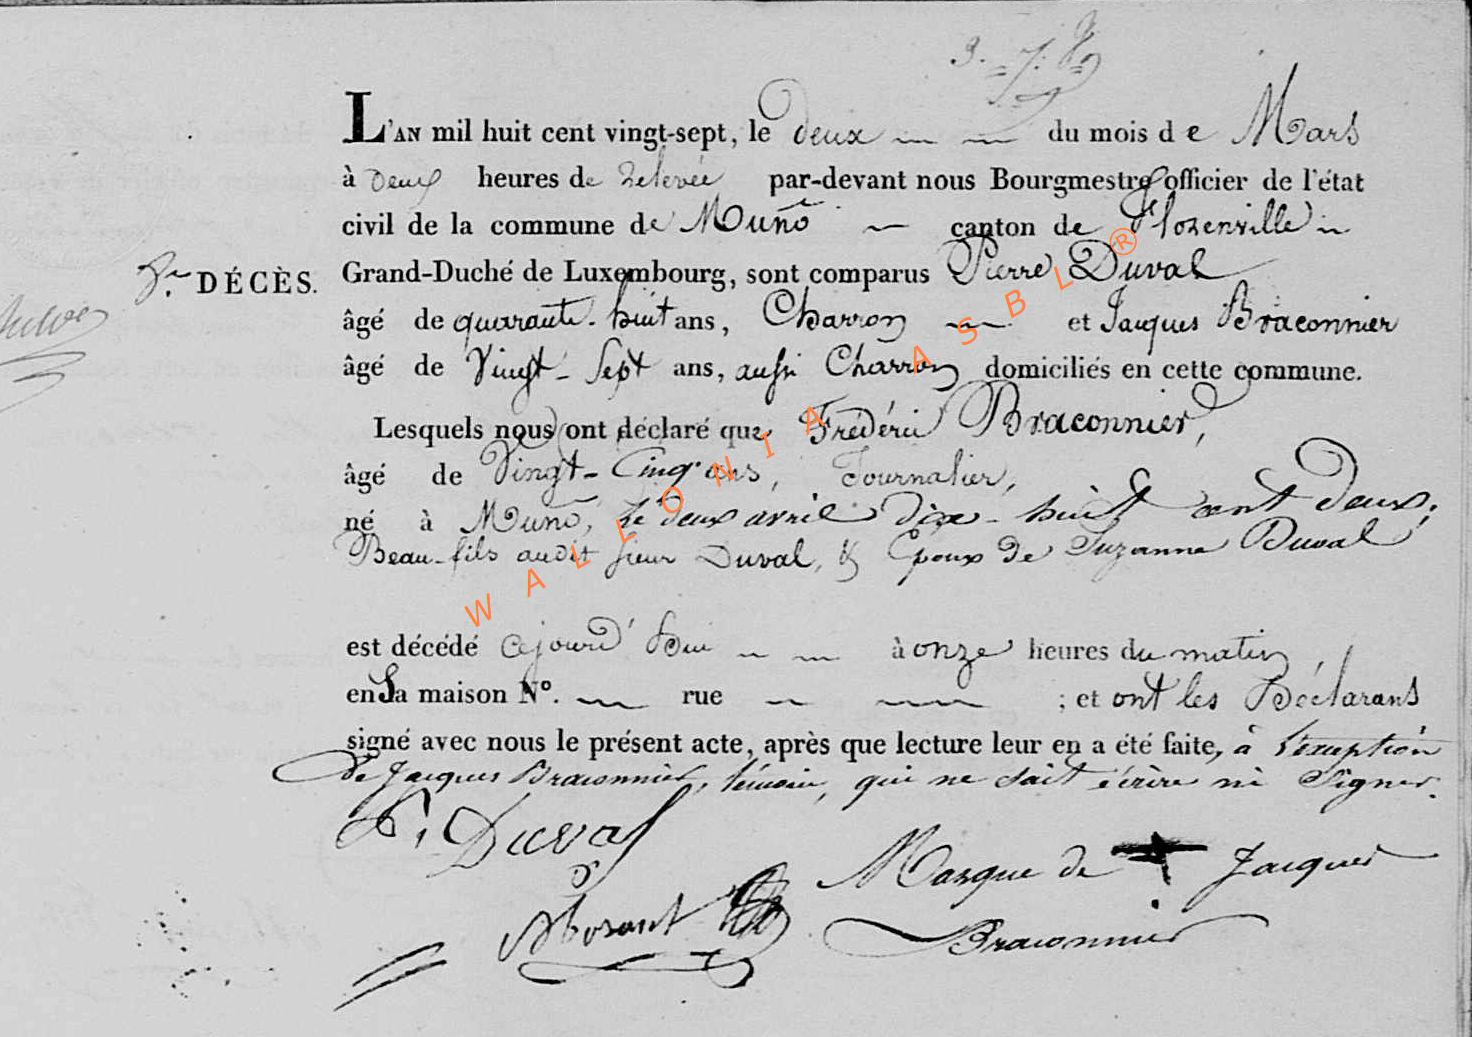 3. = 7. 8
L'AN mil huit cent vingt-sept, le deux du mois de Mars
à Deux heures de relevée par-devant nous Bourgmestre officier de l'état
civil de la commune de Muno canton de Florenville
8.e DÉCÈS. Grand-Duché de Luxembourg, sont comparus Pierre Duval
âgé de quarante-huit ans, Charron et Jacques Braconnier
âgé de Vingt-Sept ans, aussi Charron domiciliés en cette commune.
Lesquels nous ont déclaré que Frédéric Braconnier,
âgé de Vingt-Cinq ans, Journalier,
né à Muno, le deux avril dix-huit cent deux,
Beau-fils audit sieur Duval, & Epoux de Suzanne Duval
est décédé cejourd'hui à onze heures du matin,
en Sa maison N°. rue ; et ont les Déclarans
signé avec nous le présent acte, après que lecture leur en a été faite, à l'exception
de Jacques Braconnier, témoin, qui ne sait écrire ni Signer.
P. Duval
Marque de Jacques
Braconnier
WALLONIA ASBL ®